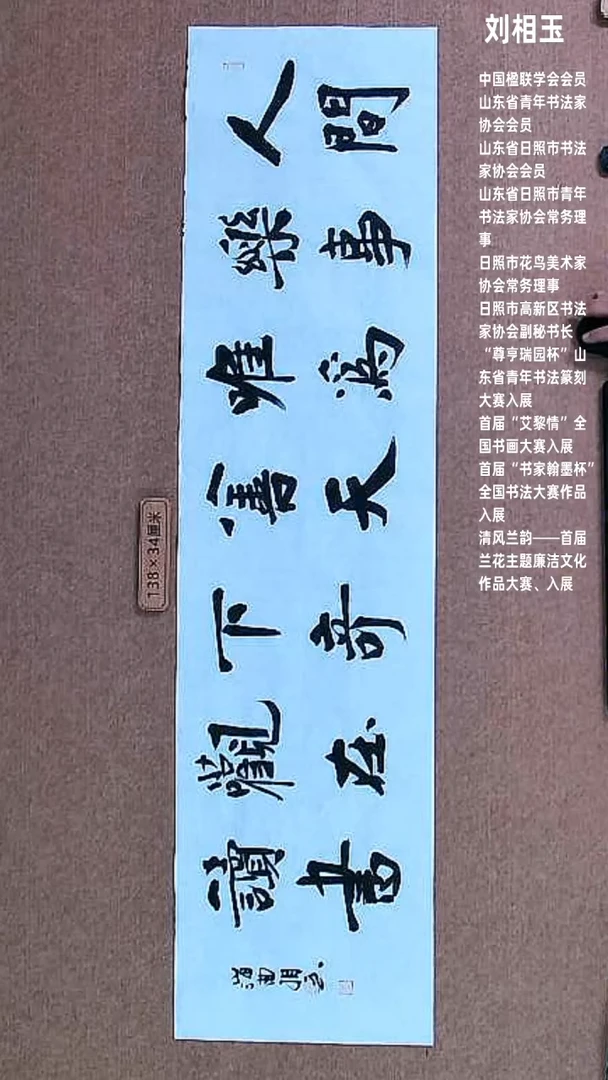 刘相玉
中国楹联学会会员
山东省青年书法家
协会会员
山东省日照市书法
家协会会员
山东省日照市青年
书法家协会常务理
事
日照市花鸟美术家
协会常务理事
日照市高新区书法
家协会副秘书长
“尊亨瑞园杯”山
东省青年书法篆刻
大赛入展
首届“艾黎情”全
国书画大赛入展
首届“书家翰墨杯”
全国书法大赛作品
入展
清风兰韵——首届
兰花主题廉洁文化
作品大赛、入展
人間
樂事
唯為
善天
下奇
觀在
讀書
海曲相玉
138×34厘米